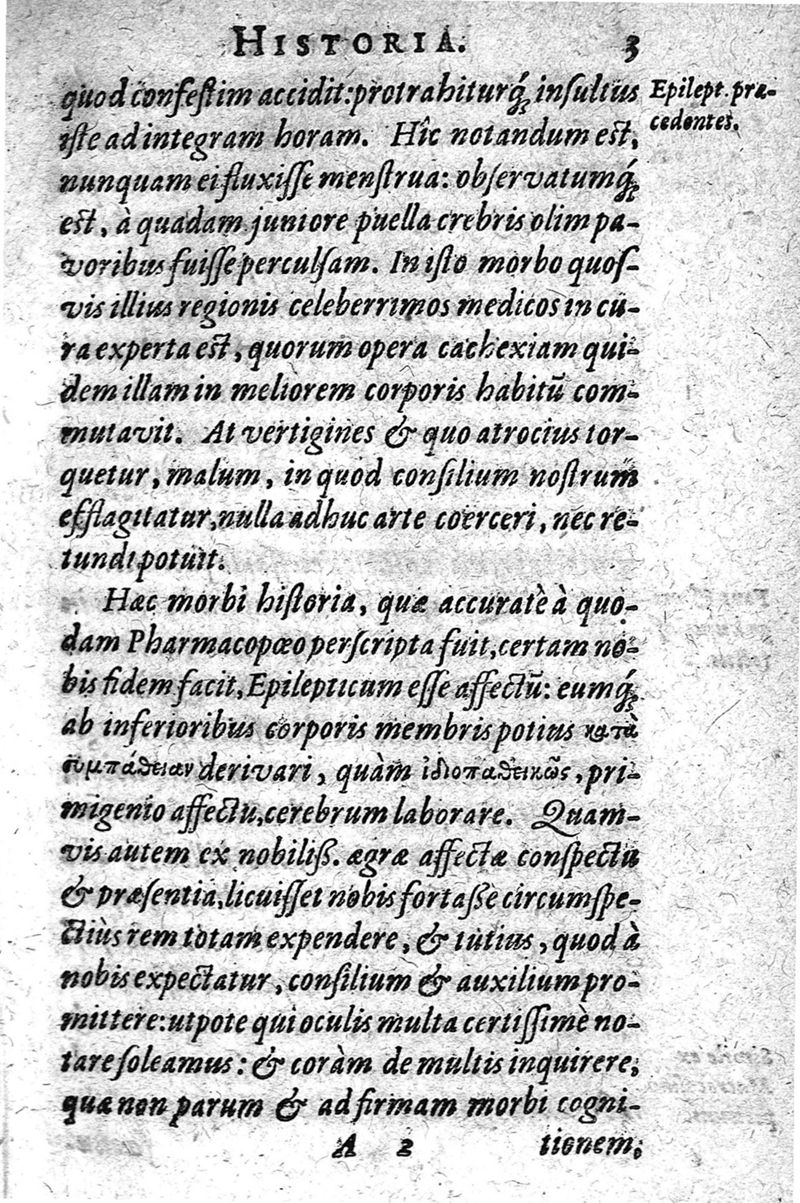 HISTORIA. 3
quod confestim accidit: protrahiturq́ꝫ insultus
Epilept. præ-
cedentes.
iste ad integram horam. Hîc notandum est,
nunquam ei fluxisse menstrua: observatumq́ꝫ
est, à quadam juniore puella crebris olim pa-
voribus fuisse perculsam. In isto morbo quos-
vis illius regionis celeberrimos medicos in cu-
ra experta est, quorum opera cachexiam qui-
dem illam in meliorem corporis habitū com-
mutavit. At vertigines & quo atrocius tor-
quetur, malum, in quod consilium nostrum
efflagitatur, nulla adhuc arte coerceri, nec re-
tundi potuit.
Hæc morbi historia, quæ accuratè à quo-
dam Pharmacopœo perscripta fuit, certam no-
bis fidem facit, Epilepticum esse affectū: eumq́ꝫ
ab inferioribus corporis membris potius κατὰ
συμπάθειαν derivari, quàm ἰδιοπαθεικῶς, pri-
migenio affectu, cerebrum laborare. Quam-
vis autem ex nobiliß. ægræ affectæ conspectu
& præsentia, licuisset nobis fortaße circumspe-
ctiùs rem totam expendere, & tutius, quod à
nobis expectatur, consilium & auxilium pro-
mittere: utpote qui oculis multa certissimè no-
tare soleamus: & coràm de multis inquirere,
quæ non parum & ad firmam morbi cogni-
A 2 tionem,